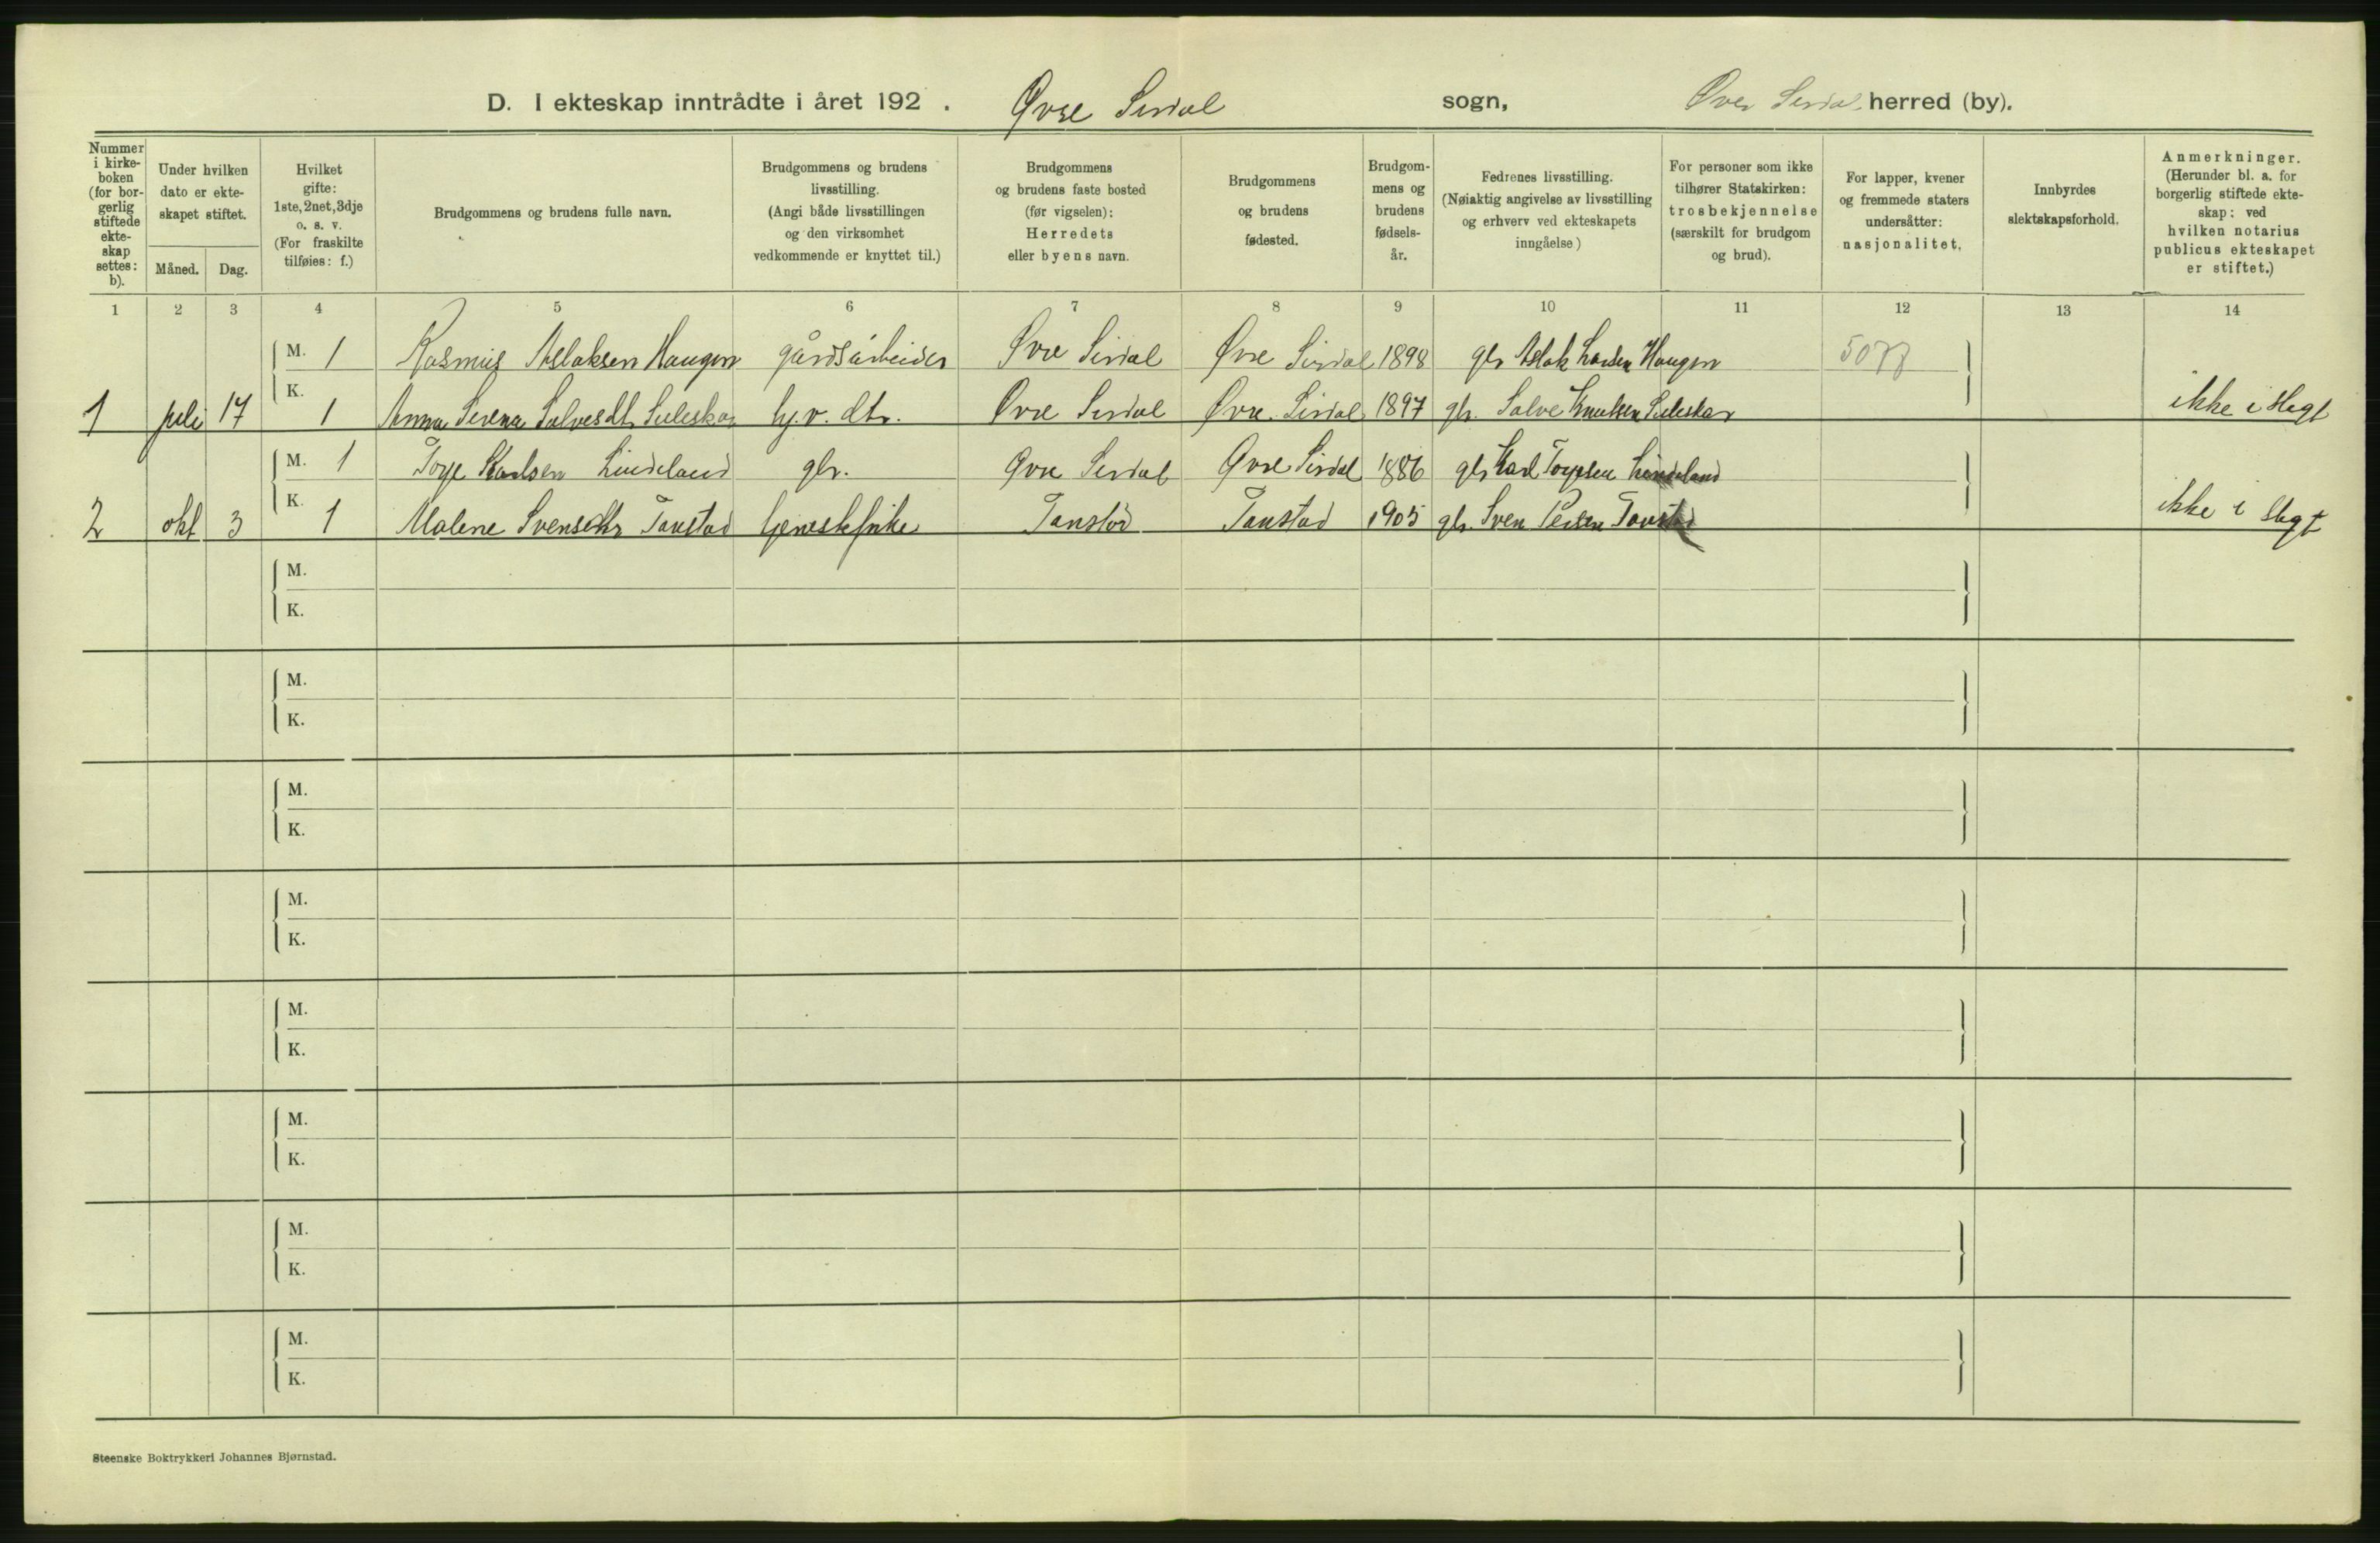 D. I ekteskap inntrådte i året 192 . Øvre Sirdal sogn, Øvre Sirdal herred (by).
Nummer i kirkeboken (for borgerlig stiftede ekteskap settes: b).
Under hvilken dato er ekteskapet stiftet.
Måned. Dag.
Hvilket gifte: 1ste, 2net, 3dje o. s. v. (For fraskilte tilføies: f.)
Brudgommens og brudens fulle navn.
Brudgommens og brudens livsstilling. (Angi både livsstillingen og den virksomhet vedkommende er knyttet til.)
Brudgommens og brudens faste bosted (før vigselen): Herredets eller byens navn.
Brudgommens og brudens fødested.
Brudgommens og brudens fødselsår.
Fedrenes livsstilling. (Nøiaktig angivelse av livsstilling og erhverv ved ekteskapets inngåelse)
For personer som ikke tilhører Statskirken: trosbekjennelse (særskilt for brudgom og brud).
For lapper, kvener og fremmede staters undersåtter: nasjonalitet.
Innbyrdes slektskapsforhold.
Anmerkninger. (Herunder bl. a. for borgerlig stiftede ekteskap: ved hvilken notarius publicus ekteskapet er stiftet.)
1 2 3 4 5 6 7 8 9 10 11 12 13 14
M. 1 Rasmus Aslaksen Haugen gårdsarbeider Øvre Sirdal Øvre Sirdal 1898 gbr Aslak Larsen Haugen
1 juli 17 K. 1 Anna Serena Salvesdt. Suleskar hj.v. dtr. Øvre Sirdal Øvre Sirdal 1897 gbr. Salve Knutsen Suleskar ikke i slegt
M. 1 Torje Karlsen Lindeland gbr. Øvre Sirdal Øvre Sirdal 1886 gbr Karl Torjesen Lindeland
2 okt 3 K. 1 Malene Svensdtr Tonstad tjenestepike Tonstad Tonstad 1905 gbr. Sven Persen Tonstad ikke i slegt
M.
K.
M.
K.
M.
K.
M.
K.
M.
K.
M.
K.
M.
K.
M.
K.
Steenske Boktrykkeri Johannes Bjørnstad.